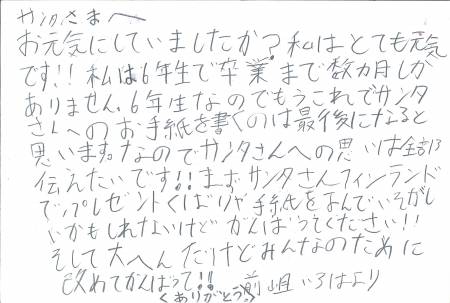 サンタさまへ
お元気にしていましたか?私はとても元気
です!!私は6年生で卒業まで数カ月しか
ありません。6年生なのでもうこれでサンタ
さんへのお手紙を書くのは最後になると
思います。なのでサンタさんへの思いは全部
伝えたいです!!まずサンタさんフィンランド
でプレゼントくばりや手紙をよんでいそがし
いかもしれないけどがんばってください!!
そして大へんだけどみんなのために
改めてがんばって!! 前 いろはより
くありがとう!